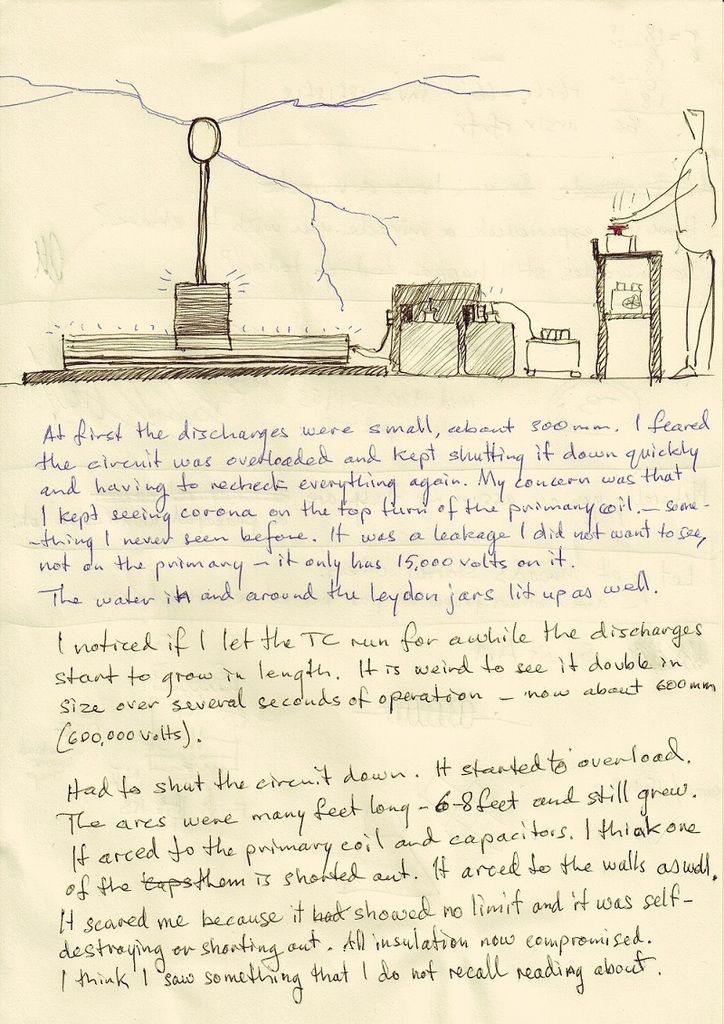 At first the discharges were small, about 300mm. I feared
the circuit was overloaded and kept shutting it down quickly
and having to recheck everything again. My concern was that
I kept seeing corona on the top turn of the primary coil. — some-
-thing I never seen before. It was a leakage I did not want to see,
not on the primary — it only has 15,000 volts on it.
The water in and around the leydon jars lit up as well.
I noticed if I let the TC run for awhile the discharges
start to grow in length. It is weird to see it double in
size over several seconds of operation — now about 600mm
(600,000 volts).
Had to shut the circuit down. It started to overload.
The arcs were many feet long - 6-8 feet and still grew.
It arced to the primary coil and capacitors. I think one
of the caps them is shorted out. It arced to the walls as well.
It scared me because it had showed no limit and it was self-
destroying or shorting out. All insulation now compromised.
I think I saw something that I do not recall reading about.